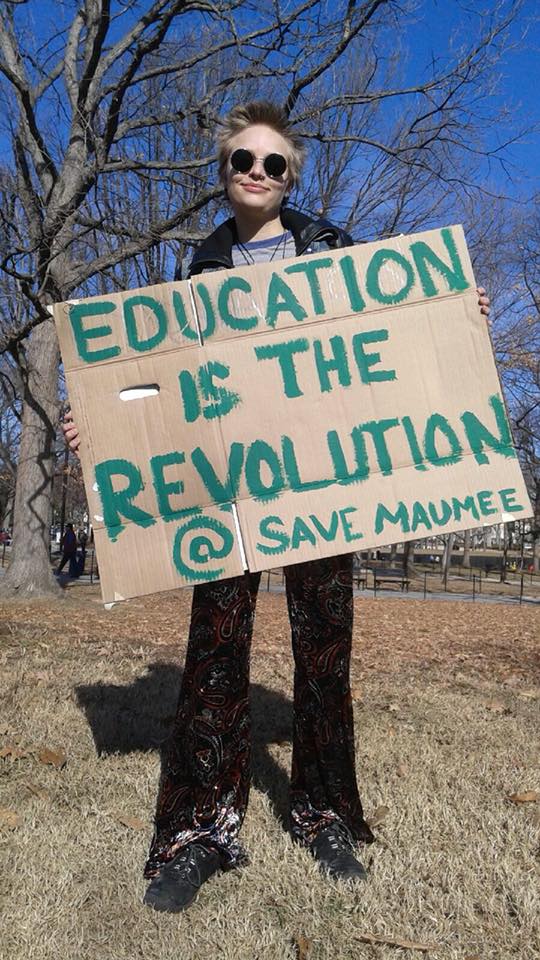 EDUCATION
IS THE
REVOLUTION
@ SAVE MAUMEE